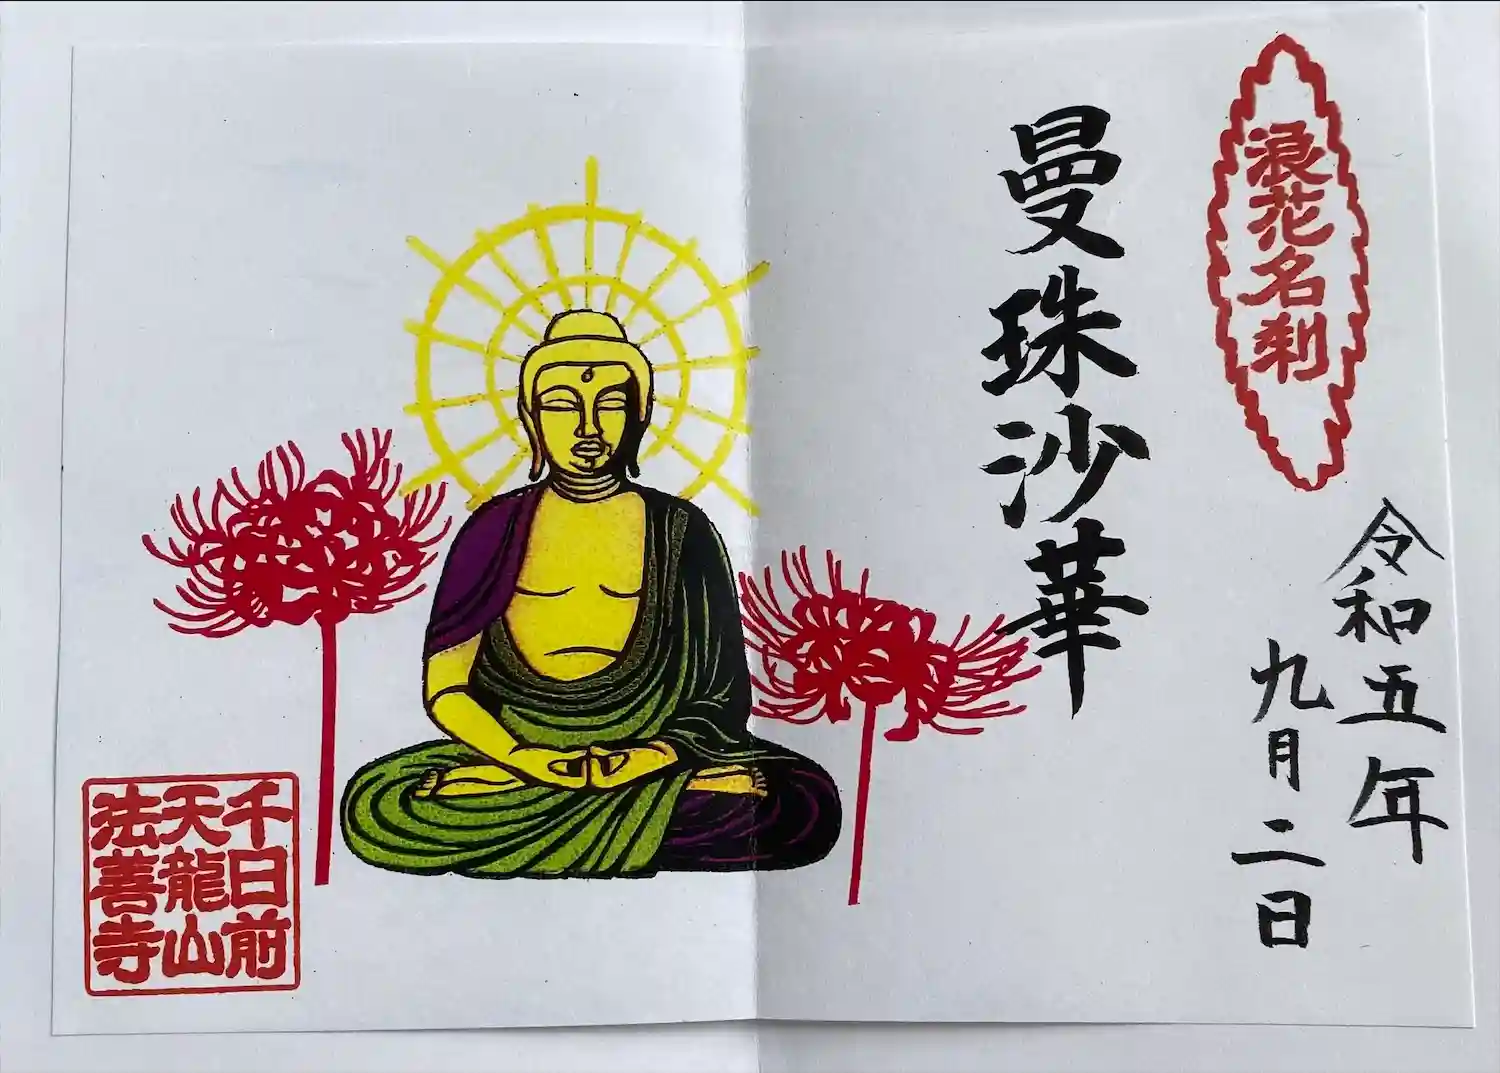 浪花名刹
令和五年
九月二日
曼珠沙華
千日前
天龍山
法善寺